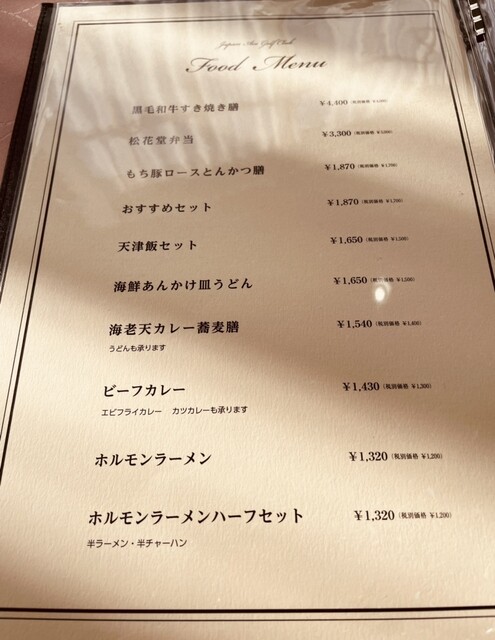 Japan Ace Golf Club
Food Menu
黒毛和牛すき焼き膳 ¥4,400 (税別価格 ¥4,000)
松花堂弁当 ¥3,300 (税別価格 ¥3,000)
もち豚ロースとんかつ膳 ¥1,870 (税別価格 ¥1,700)
おすすめセット ¥1,870 (税別価格 ¥1,700)
天津飯セット ¥1,650 (税別価格 ¥1,500)
海鮮あんかけ皿うどん ¥1,650 (税別価格 ¥1,500)
海老天カレー蕎麦膳 ¥1,540 (税別価格 ¥1,400)
うどんも承ります
ビーフカレー ¥1,430 (税別価格 ¥1,300)
エビフライカレー カツカレーも承ります
ホルモンラーメン ¥1,320 (税別価格 ¥1,200)
ホルモンラーメンハーフセット ¥1,320 (税別価格 ¥1,200)
半ラーメン・半チャーハン